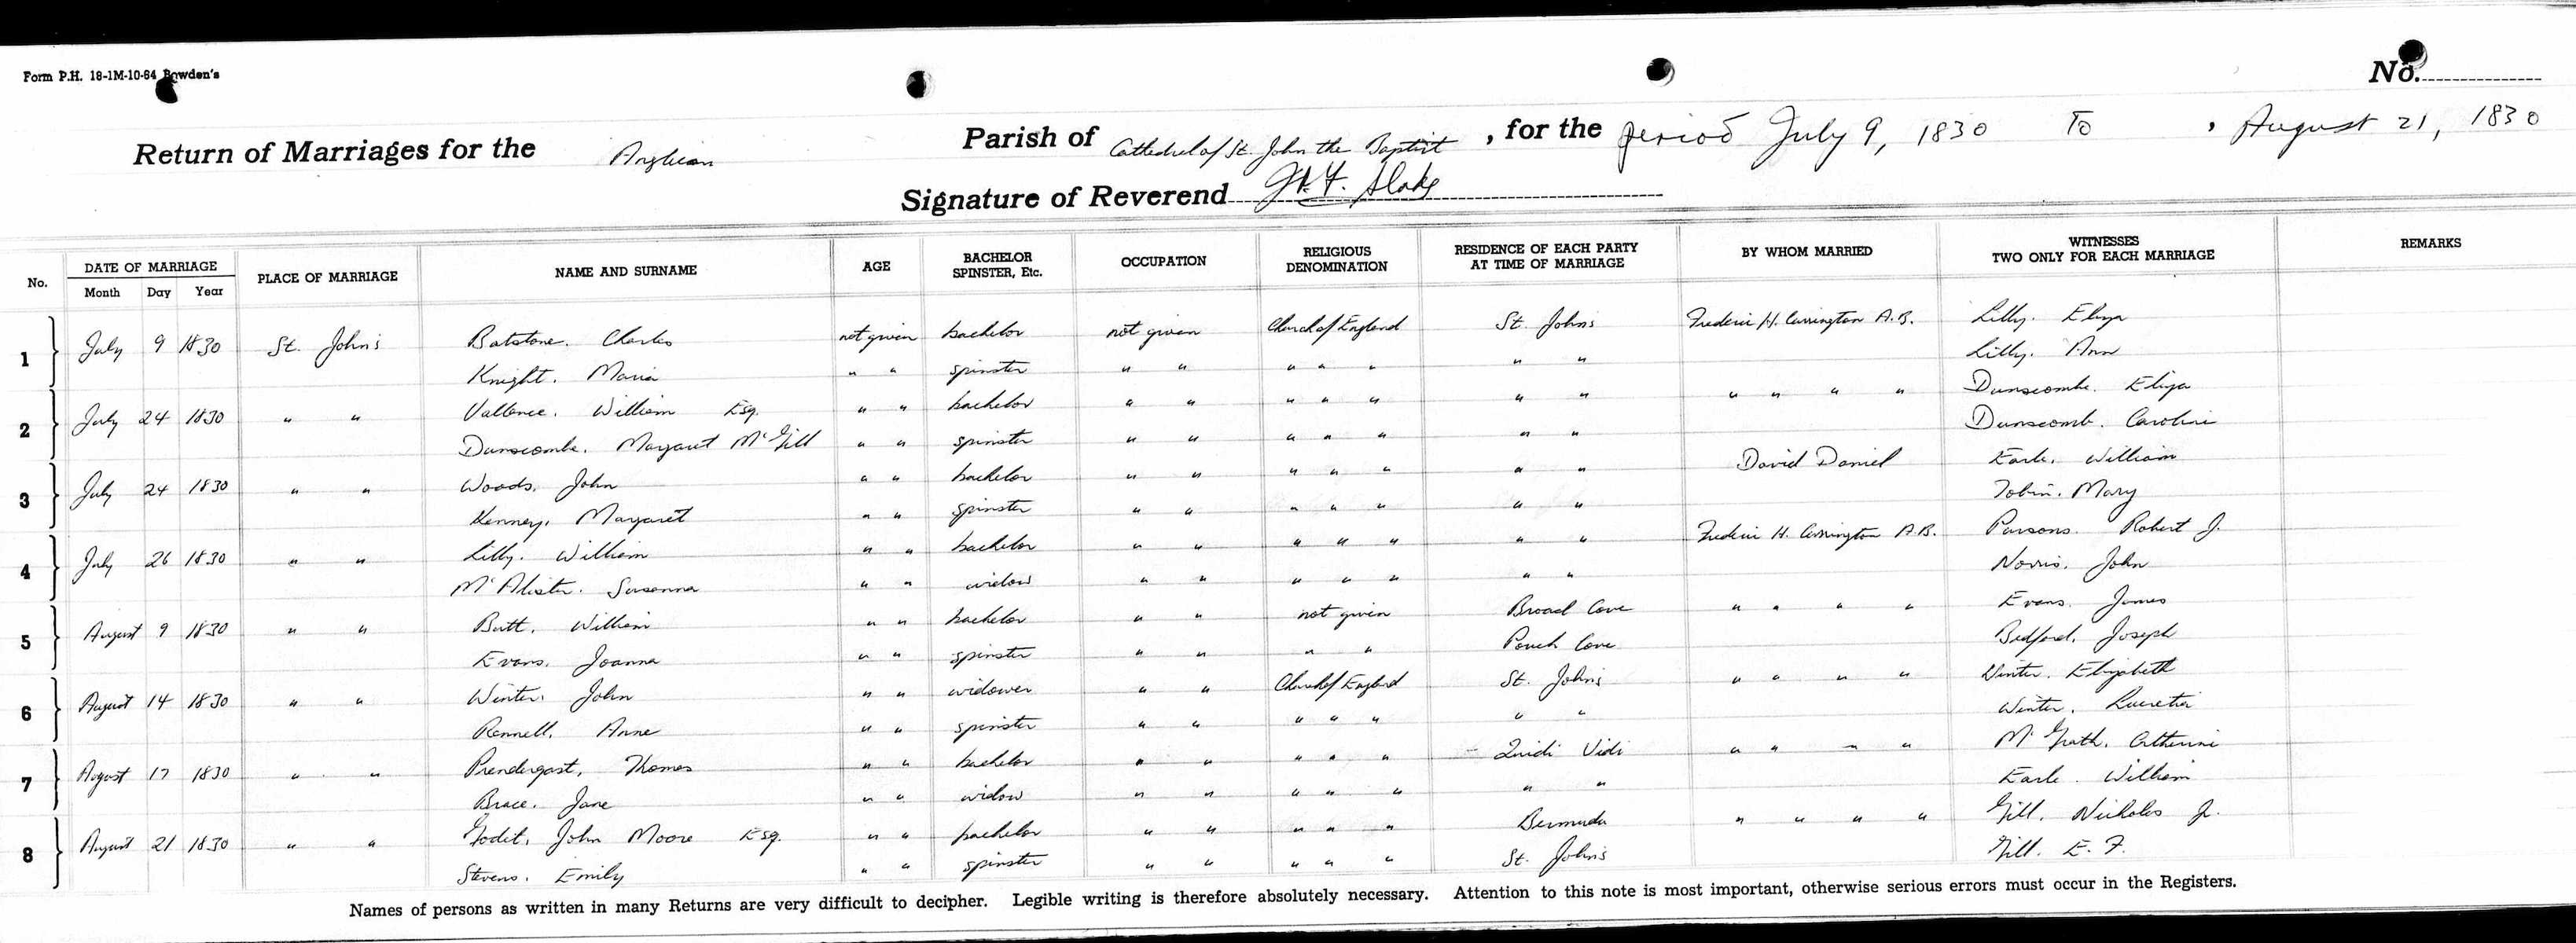 Form P.H. 18-1M-10-64 Bowden's
No.
Return of Marriages for the Anglican Parish of Cathedral of St. John the Baptist, for the period July 9, 1830 To , August 21, 1830
Signature of Reverend
No. DATE OF MARRIAGE PLACE OF MARRIAGE NAME AND SURNAME AGE BACHELOR SPINSTER, Etc. OCCUPATION RELIGIOUS DENOMINATION RESIDENCE OF EACH PARTY AT TIME OF MARRIAGE BY WHOM MARRIED WITNESSES TWO ONLY FOR EACH MARRIAGE REMARKS
Month Day Year
1 July 9 1830 St. John's Batstone. Charles not given bachelor not given Church of England St. John's Frederic H. Carrington A.B. Lilly. Eliza
Knight. Maria " " spinster " " " " " " " Lilly. Ann
2 July 24 1830 " " Vallence. William Esq. " " bachelor " " " " " " " " " " " Dunscombe. Eliza
Dunscombe. Margaret McGill " " spinster " " " " " " " Dunscomb. Caroline
3 July 24 1830 " " Woods. John " " bachelor " " " " " " " David Daniel Earle. William
Kenney. Margaret " " spinster " " " " " " " Tobin. Mary
4 July 26 1830 " " Lilly. William " " bachelor " " " " " " " Frederic H. Carrington A.B. Parsons. Robert J.
McAlister. Susanna " " widow " " " " " " " Norris. John
5 August 9 1830 " " Butt. William " " bachelor " " not given Broad Cove " " " " Evans. James
Evans. Joanna " " spinster " " " " Pouch Cove Bedford. Joseph
6 August 14 1830 " " Winter. John " " widower " " Church of England St. John's " " " " Winter. Elizabeth
Rennell. Anne " " spinster " " " " " " " Winter. Lucretia
7 August 17 1830 " " Prendergast. Thomas " " bachelor " " " " " Quidi Vidi " " " " McGrath. Catherine
Brace. Jane " " widow " " " " " " " Earle. William
8 August 21 1830 " " Godet. John Moore Esq. " " bachelor " " " " " Bermuda " " " " Gill. Nicholas Jr.
Stevens. Emily " " spinster " " " " " St. John's Gill. E. F.
Names of persons as written in many Returns are very difficult to decipher. Legible writing is therefore absolutely necessary. Attention to this note is most important, otherwise serious errors must occur in the Registers.